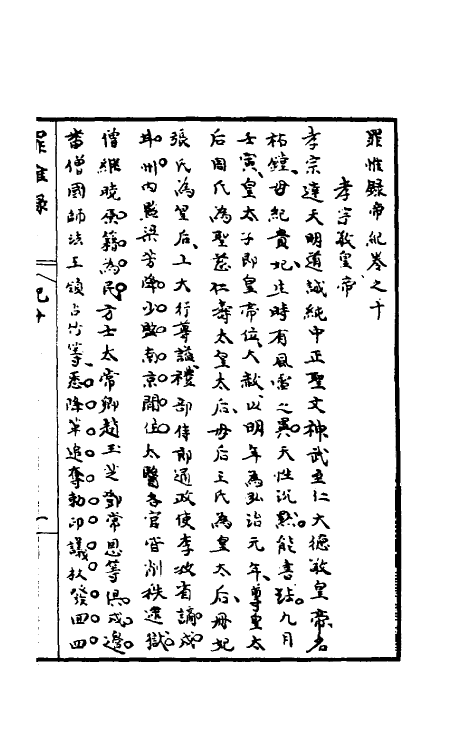 罪惟錄帝紀卷之十
孝宗敬皇帝
孝宗達天明道誠純中正聖文神武至仁大德敬皇帝名
祐鏜母紀貴妃生時有風雷之異天性沉默能書詩九月
壬寅皇太子即皇帝位大赦以明年為弘治元年尊皇太
后周氏為聖慈仁壽太皇太后母后王氏為皇太后冊妃
張氏為皇后上大行尊謚禮部侍郎通政使李孜省謫戍
州內監梁芳降少監南京閒住太醫等官皆削秩逮獄
僧繼曉原籍為民方士太常卿趙玉芝鄧常恩等俱戍邊
番僧國師法王領占竹等悉降革追奪勅印議放發回四
罪惟錄
紀十